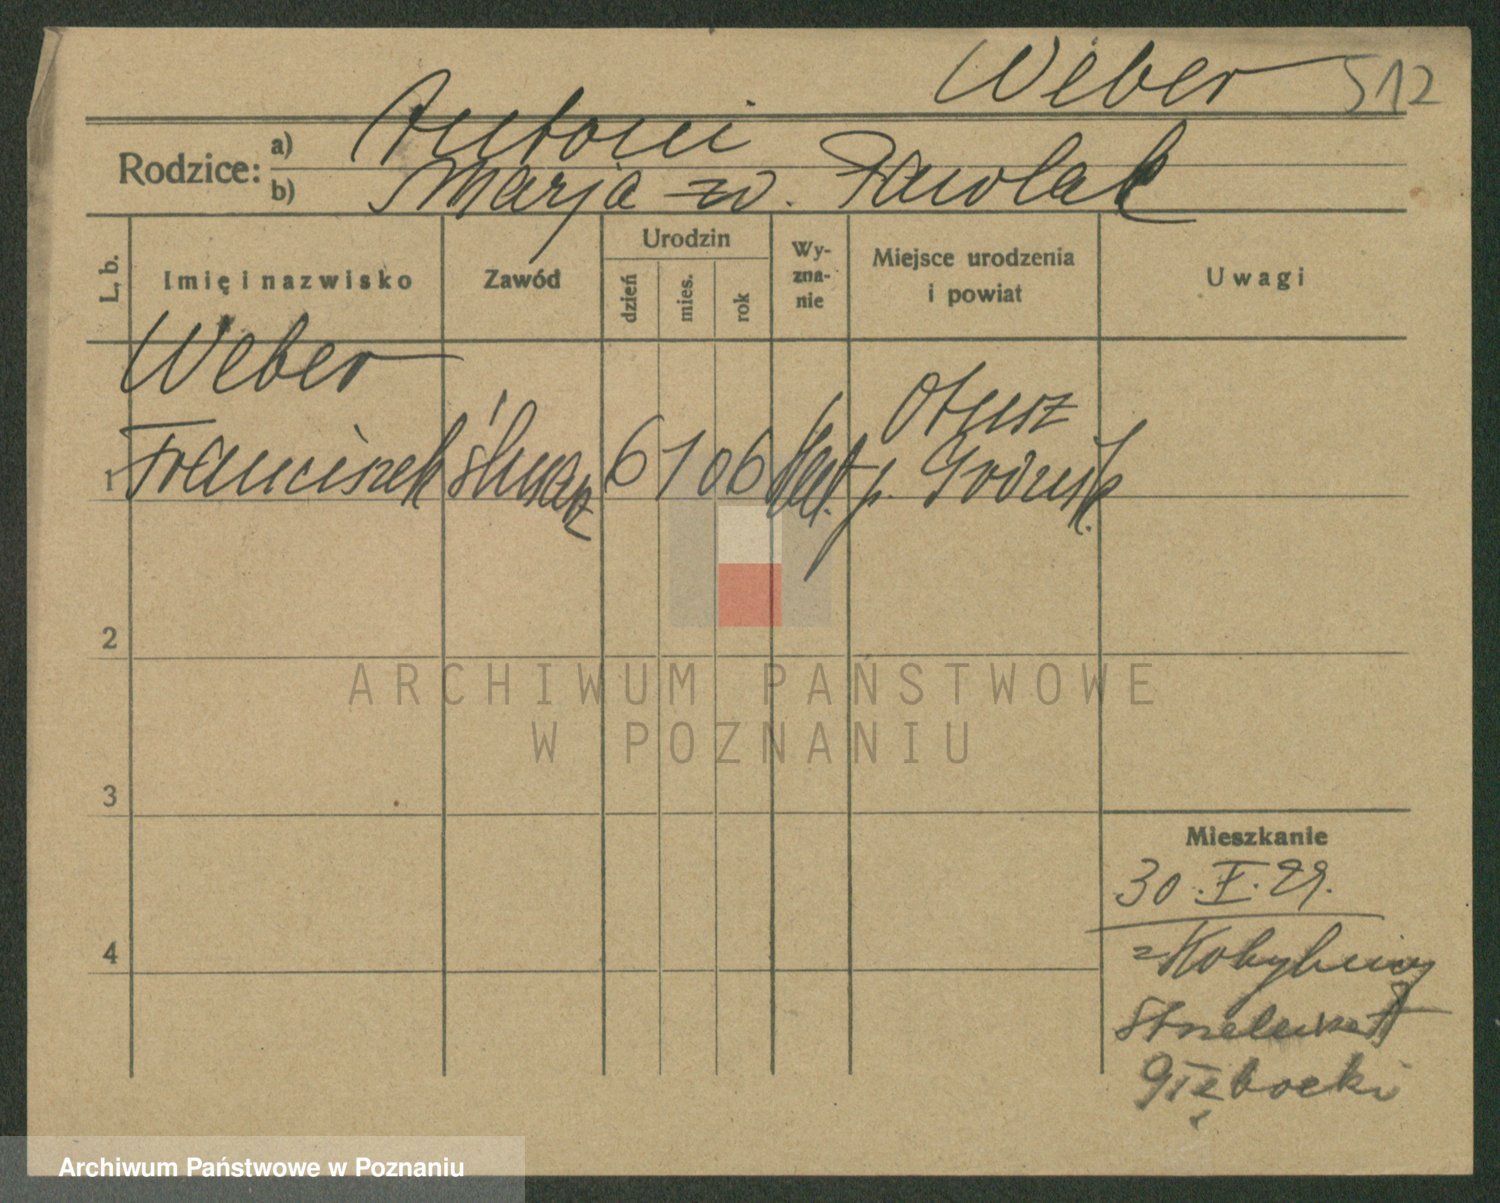 Weber 512
Rodzice: a) Antoni
b) Marja zd. Pawolak
L. b. Imię i nazwisko Zawód Urodzin dzień mies. rok Wyzna-nie Miejsce urodzenia i powiat Uwagi
Weber
1 Franciszek ślusarz 6 1 06 kat. Otusz
p. Grodzisk.
2
ARCHIWUM PAŃSTWOWE
W POZNANIU
3
Mieszkanie
30.X.29.
4 z Kobylnicy
Głębocki
Archiwum Państwowe w Poznaniu